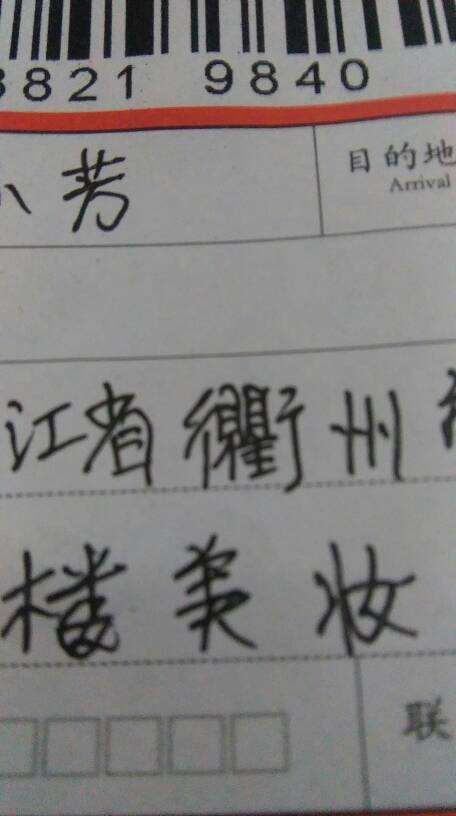 3821 9840
小芳
目的地
Arrival
江省衢州
楼美妆
联